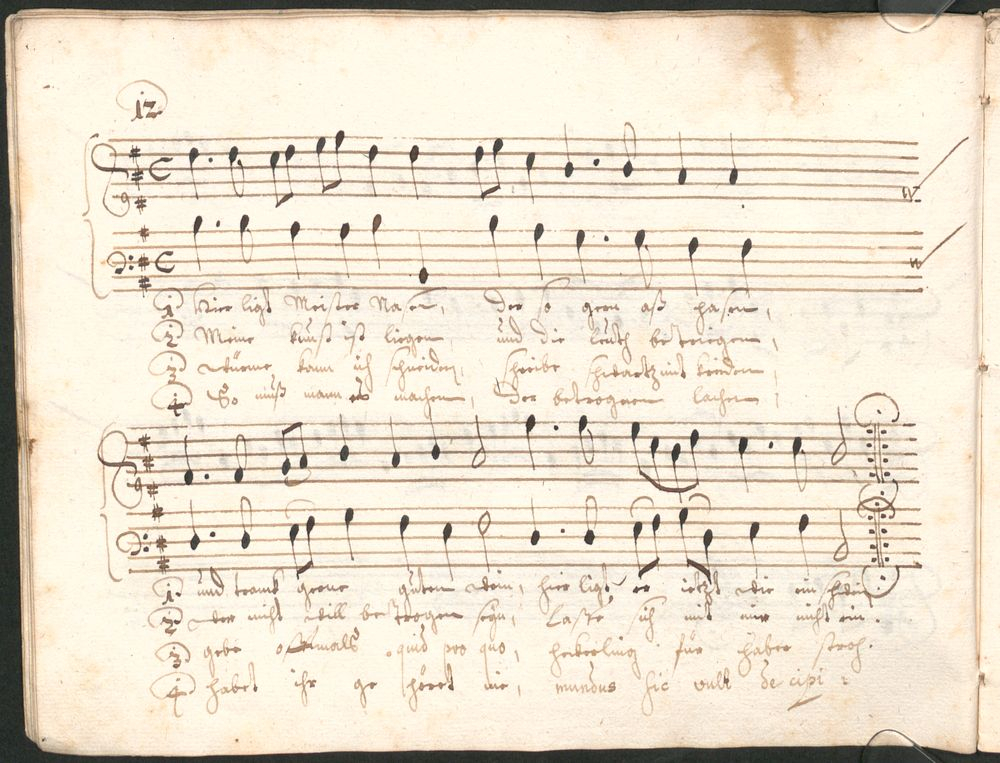 12
1 Hier ligt Meister Nasen, der so gern aß hasen,
2 Meine kunst ist liegen, und die leuth betriegen,
3 Würme kann ich schneiden, scheibe schwartz mit kreiden,
4 So muß mann es machen, der betrognen lachen,
1. und tranck gerne guten wein, hier ligt er ietzt wie ein schwein
2 wer nicht will betrogen seyn, laße sich mit mir nicht ein.
3 gebe offtmals quid pro quo, heckerling für haber stroh.
4 habet ihr gehöret nie, mundus hic vult decipi